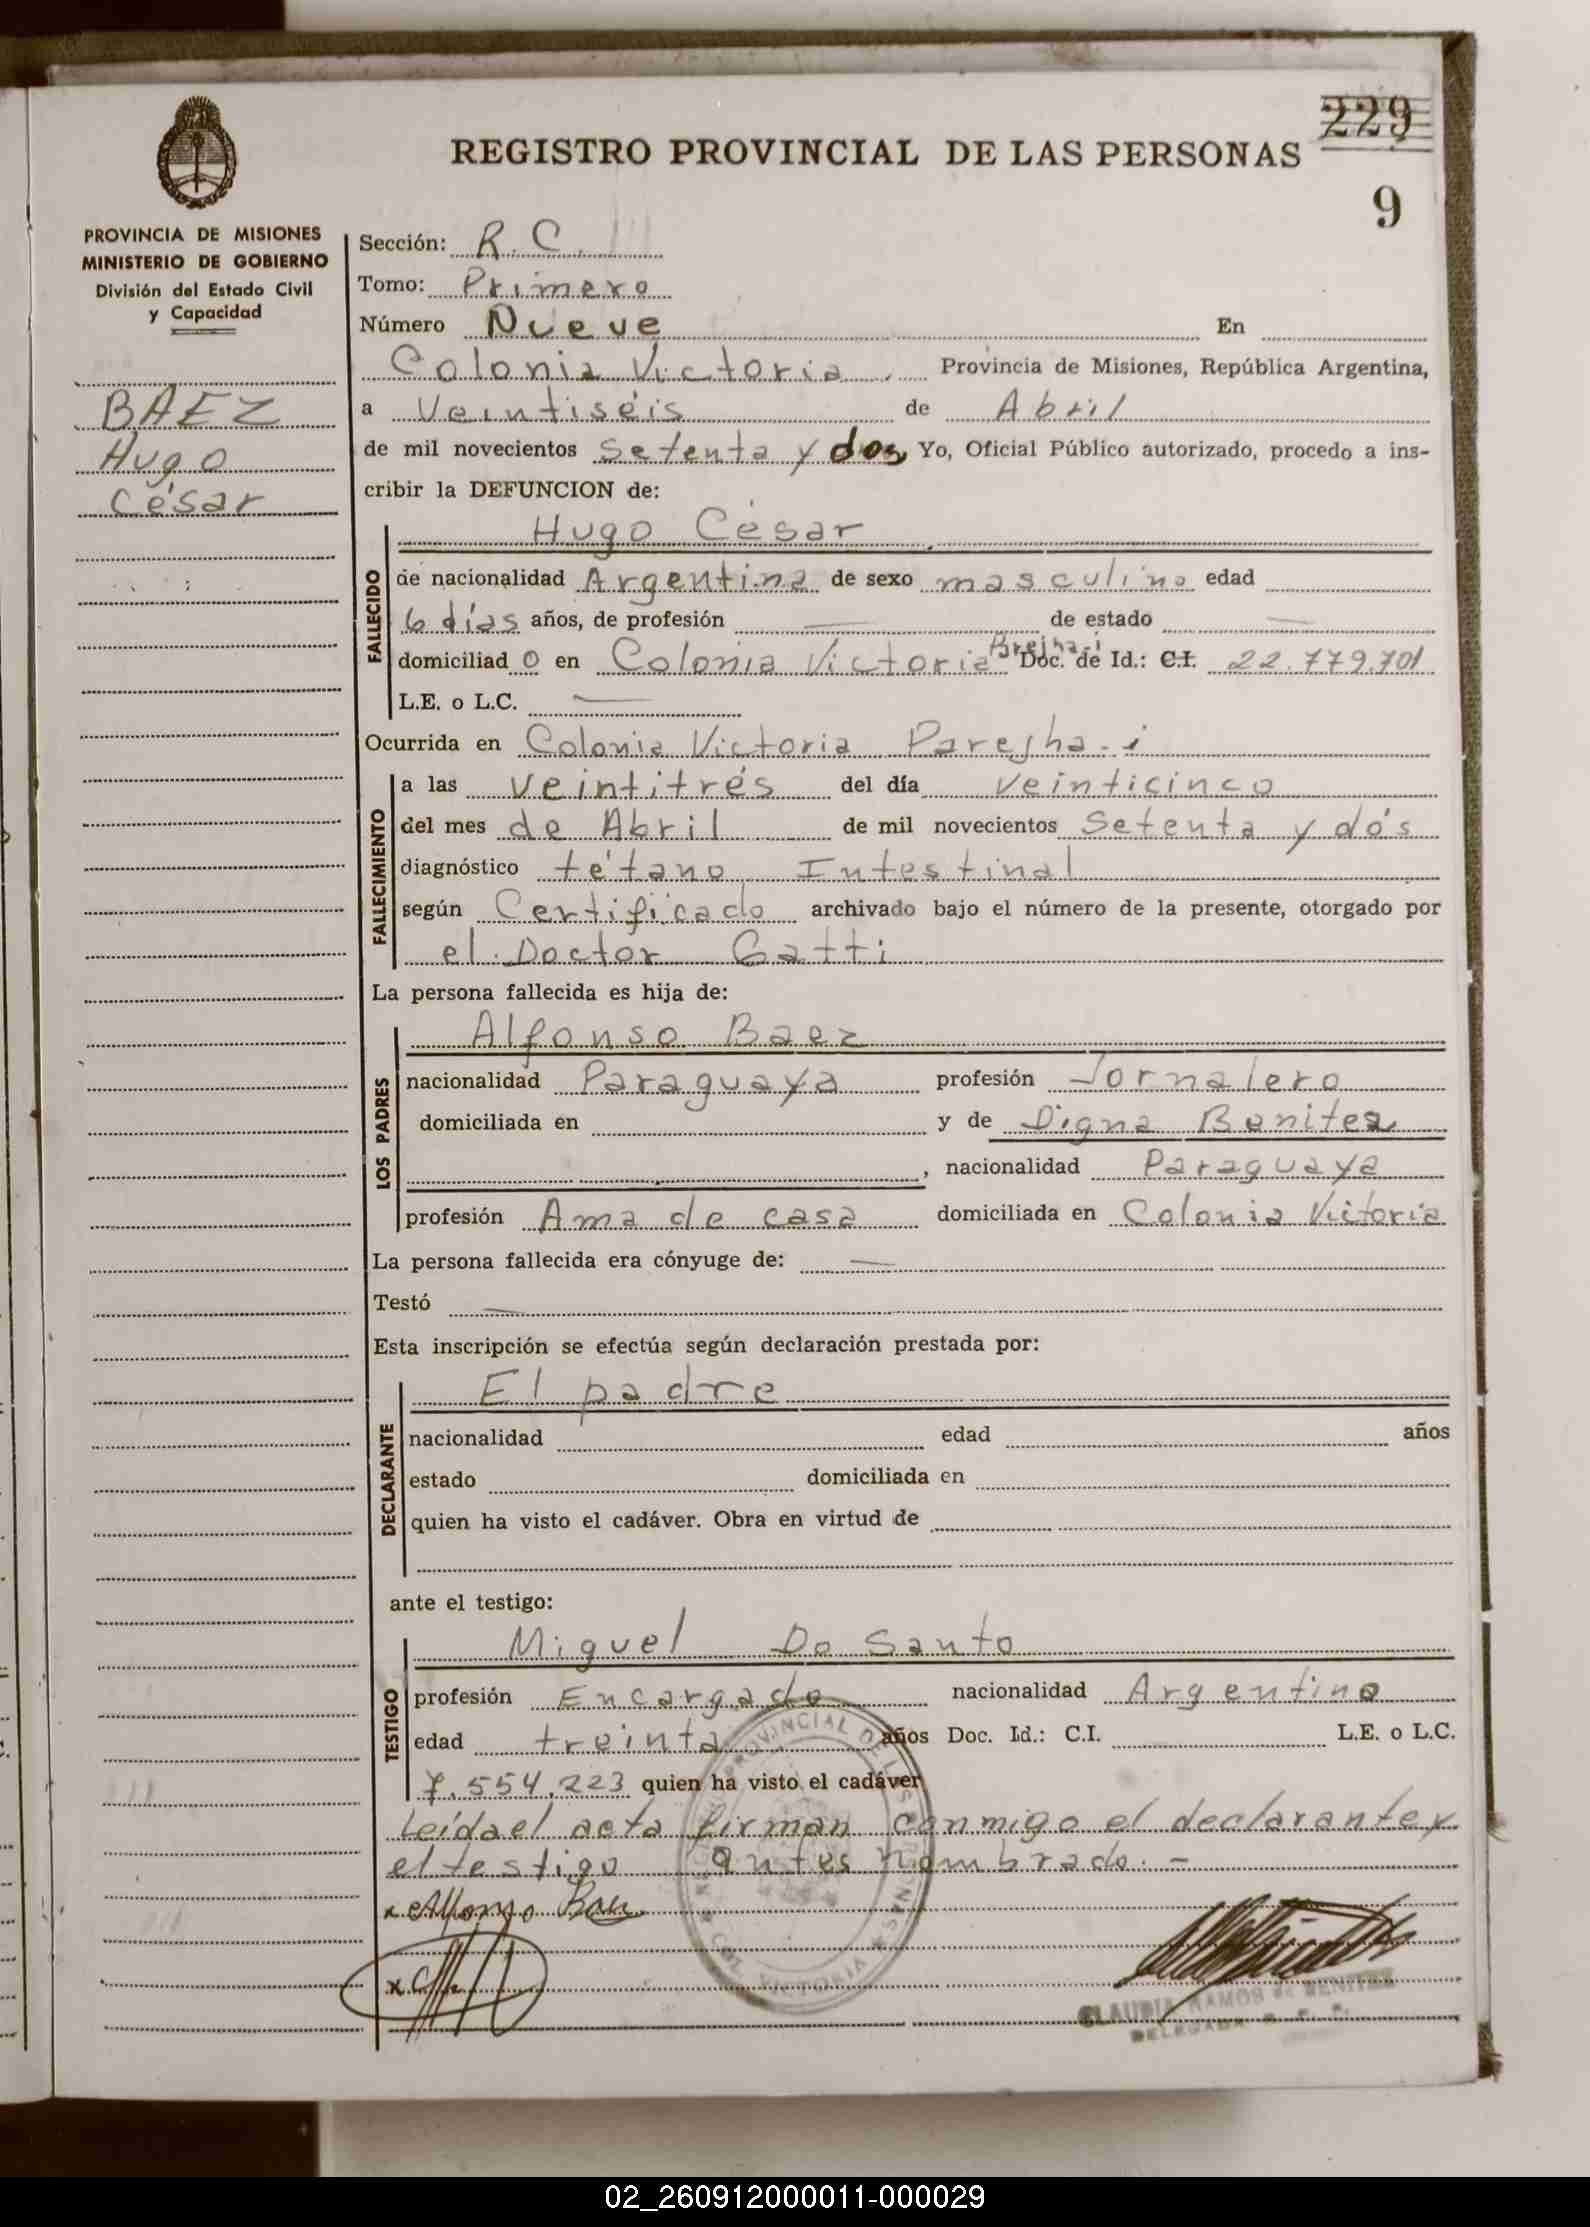 229
REGISTRO PROVINCIAL DE LAS PERSONAS
9
PROVINCIA DE MISIONES
MINISTERIO DE GOBIERNO
División del Estado Civil
y Capacidad
BAEZ
Hugo
César
Sección: R. C.
Tomo: Primero
Número Nueve En
Colonia Victoria, Provincia de Misiones, República Argentina,
a Veintiséis de Abril
de mil novecientos Setenta y dos Yo, Oficial Público autorizado, procedo a ins-
cribir la DEFUNCION de:
Hugo César
FALLECIDO
de nacionalidad Argentina de sexo masculino edad
6 días años, de profesión — de estado —
domiciliado en Colonia Victoria Doc. de Id.: C.I. 22.779.701
L.E. o L.C. —
Ocurrida en Colonia Victoria Parejha-i
FALLECIMIENTO
a las veintitrés del día veinticinco
del mes de Abril de mil novecientos Setenta y dós
diagnóstico tétano Intestinal
según Certificado archivado bajo el número de la presente, otorgado por
el Doctor Gatti
La persona fallecida es hija de:
LOS PADRES
Alfonso Baez
nacionalidad Paraguaya profesión Jornalero
domiciliada en y de Digna Benitez
, nacionalidad Paraguaya
profesión Ama de casa domiciliada en Colonia Victoria
La persona fallecida era cónyuge de: —
Testó —
Esta inscripción se efectúa según declaración prestada por:
DECLARANTE
El padre
nacionalidad edad años
estado domiciliada en
quien ha visto el cadáver. Obra en virtud de
ante el testigo:
TESTIGO
Miguel Do Santo
profesión Encargado nacionalidad Argentino
edad treinta años Doc. Id.: C.I. L.E. o L.C.
7.554.223 quien ha visto el cadáver
Leída el acta firman conmigo el declarante y
el testigo antes nombrado. -
x Alfonso Baez
x
PROVINCIAL DE LAS PERSONAS
VICTORIA
CLAUDIA RAMOS de BENITEZ
DELEGADA
02_260912000011-000029